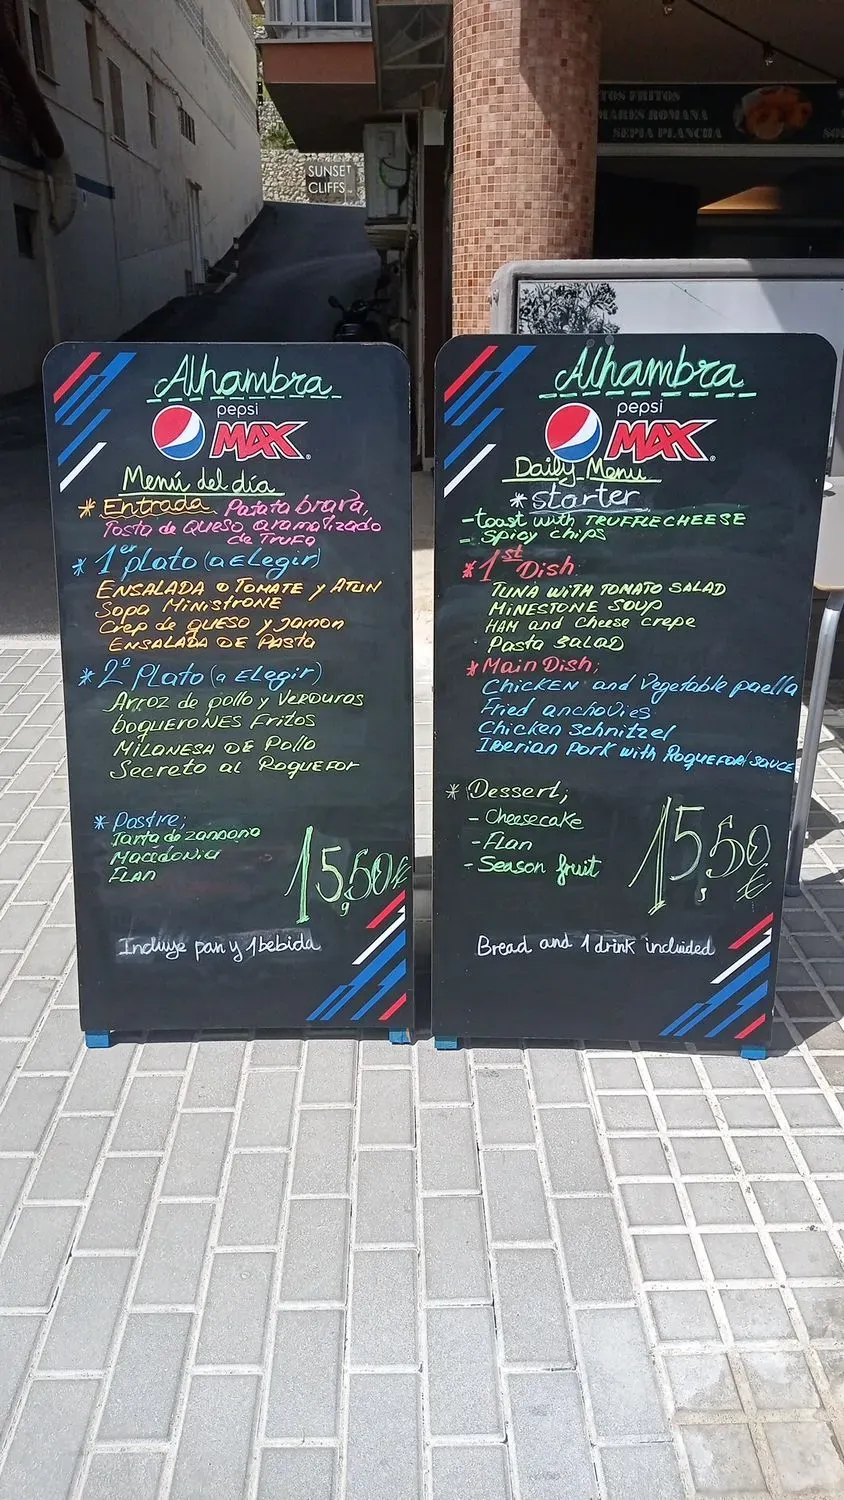 TOS FRITOS
MARES ROMANA
SEPIA PLANCHA
SUNSET
CLIFFS
Alhambra
pepsi
MAX
Menú del día
* Entrada Patata brava,
Tosta de Queso aramalizado
de Trufa
* 1er plato (a ELegir)
ENSALADA D TOMATE y ATUN
Sopa MiNiSTRONE
Crep de QUESO y JAMON
ENSALADA DE PASTA
* 2º PLATO (a ELegir)
Arroz de pollo y VERDURAS
boQUERONES Fritos
MILANESA DE Pollo
Secreto al ROQUEFOR
* Postre;
Tarta de zanaona
Macedonia
FLAN
15,50€
Incluye pan y 1 bebida
Alhambra
pepsi
MAX
Daily Menu
* starter
- toast with TRUFFLE CHEESE
- Spicy chips
* 1st Dish
TUNA WITH TOMATO SALAD
MINESTONE SOUP
HAM and cheese crepe
Pasta SALAD
* Main Dish;
Chicken and Vegetable paella
Fried anchovies
Chicken Schnitzel
Iberian Pork with ROQUEFOR SAUCE
* Dessert;
- Cheesecake
- FLan
- Season fruit
15,50€
Bread and 1 drink included